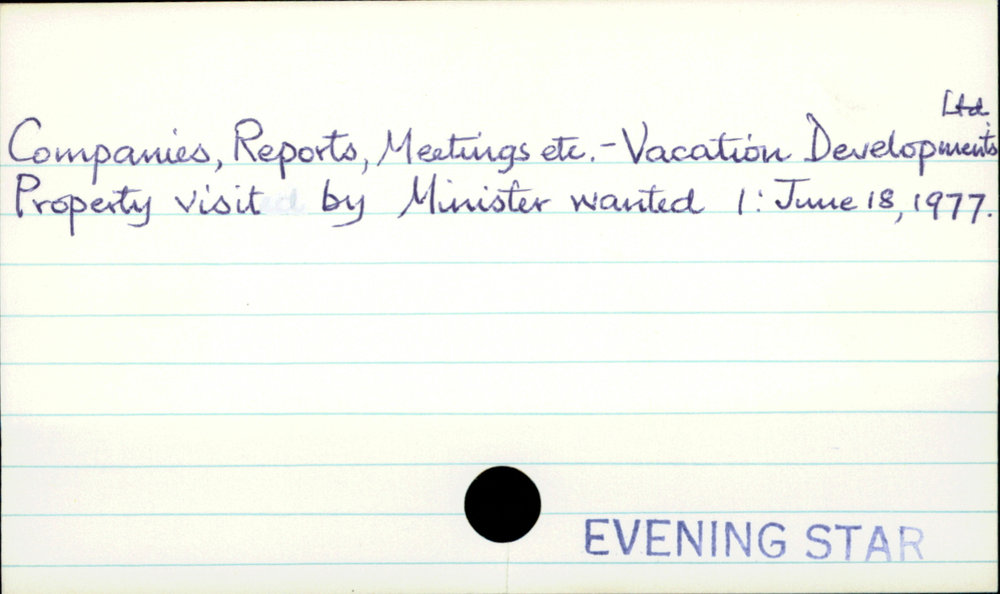 Companies, Reports, Meetings etc. - Vacation Developments Ltd.
Property visit by Minister wanted 1: June 18, 1977.
EVENING STAR